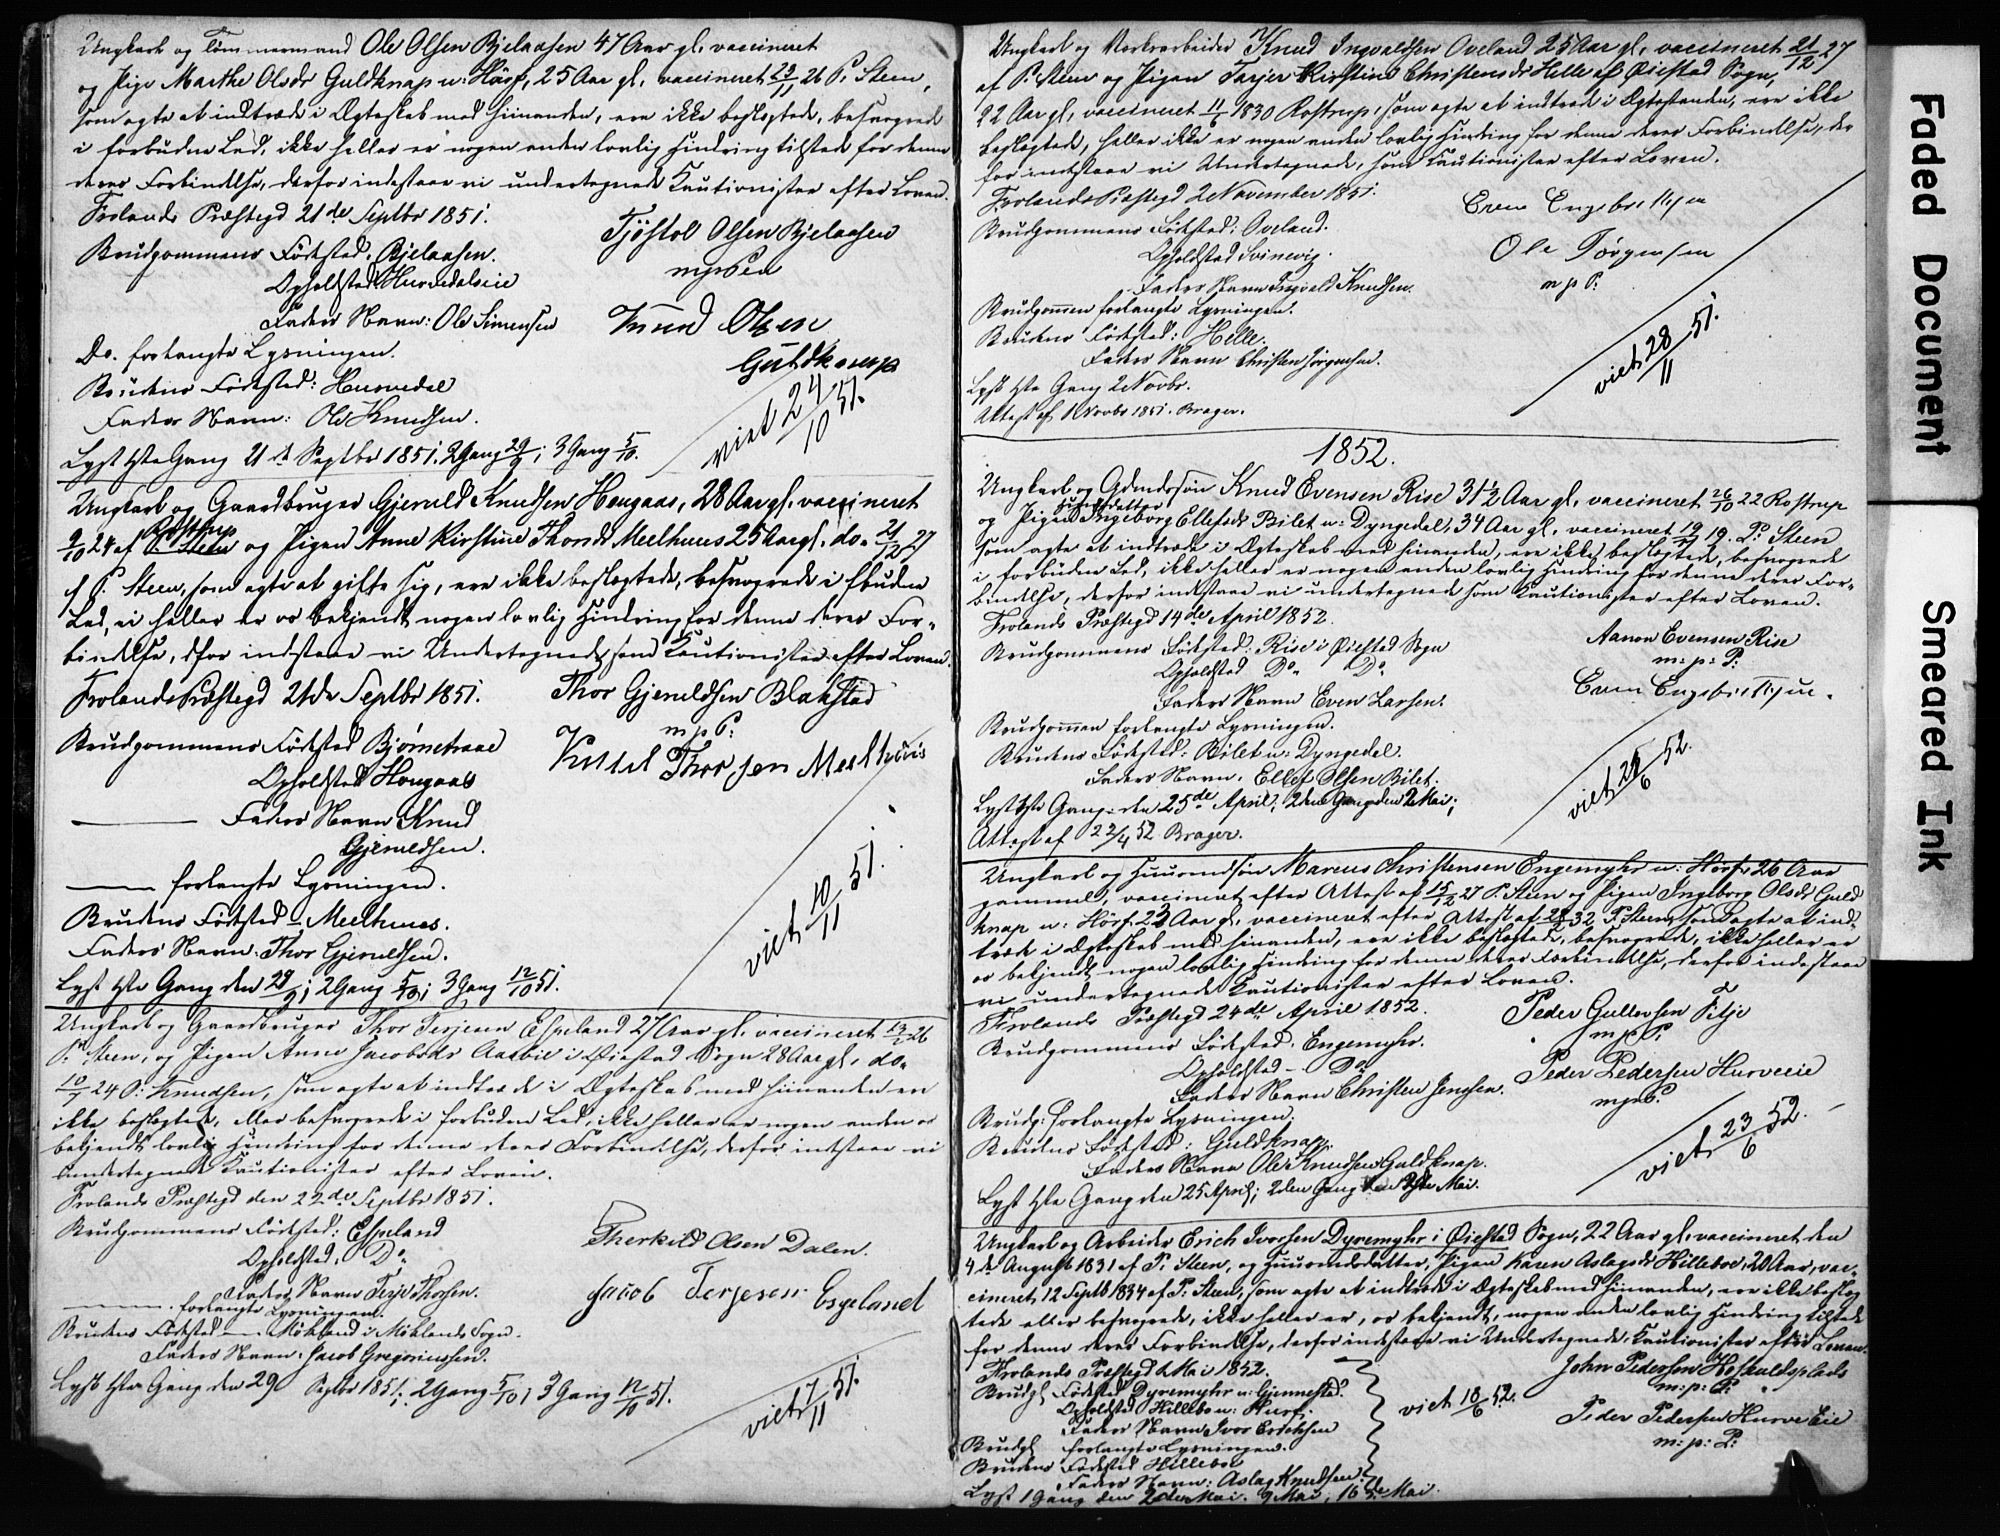 Ungkarl og Tømmermand Ole Olsen Bjelaasen 47 Aar gl. vaccineret
og Pige Marthe Olsdr Guldknap u: Hørf, 25 Aar gl. vaccineret 23/11 26 P. Steen,
som agte at indtræde i Ægteskab med hinanden, ere ikke beslægtede, besvogrede
i forbudne Led, ikke heller er nogen anden lovlig Hindring tilstede for denne
deres Forbindelse, derfor indestaae vi undertegnede Kautionister efter Loven.
Frolands Præstegd 21de Septbr 1851.
Brudgommens Fødested, Bjelaasen.
Opholdsted Hurvedalseie
Faders Navn: Ole Simensen
Tjøstol Olsen Bjelaasen
Knud Olsen
Guldknap
Do. forlangte Lysningen.
Brudens Fødested: Hurvedal
Faders Navn: Ole Knudsen.
viet 24/10 51.
Lyst 1ste Gang 21de Septbr 1851. 2 Gang 29/9; 3 Gang 5/10.
Ungkarl og Gaardbruger Gjeruld Knudsen Hougaas, 28 Aar gl. vaccineret
9/10 24 af Rostrup og Pigen Anne Kirstine Thorsdr Meelhuus 25 Aar gl. do. 21/12 27
af P. Steen, som agte at gifte sig, ere ikke beslægtede, besvogrede i fbudne
Led, ei heller er os bekjendt nogen lovlig Hindring for denne deres For-
bindelse, dfor indstaae vi Undertegnede som Kautionister efter Loven.
Frolands Præstegd 21de Septbr 1851.
Thor Gjeruldsen Blakstad
m.p.P:
Brudgommens Fødested Bjørnetraae
Kittil Thorsen Meelhuus
Opholdsted Hougaas
Faders Navn Knud
Gjeruldsen.
forlangte Lysningen.
Brudens Fødested Meelhuus.
Faders Navn. Thor Gjeruldsen.
viet 10/11 51.
Lyst 1ste Gang den 29/9; 2 Gang 5/10; 3 Gang 12/10 51.
Ungkarl og Gaardbruger Thor Terjesen Espeland 27 Aar gl. vaccineret 26
P. Steen, og Pigen Anne Jacobsdr Aasbie i Øiestad Sogn 28 Aar gl. do.
10/7 24 P: Knudsen, som agte at indtræde i Ægteskab med hinanden er
ikke beslægtede, eller besvogrede i forbuden Led, ikke heller er nogen anden os
bekjendt lovlig Hindring for denne deres Forbindelse, derfor indstaae vi
undertegnede Kautionister efter Loven.
Frolands Præstegd den 22de Septbr 1851.
Brudgommens Fødested: Espeland
Opholdsted, Do
Therkild Olsen Dalen.
Faders Navn Terje Thorsen.
forlangte Lysningen.
Jacob Terjesen Espeland
Brudens Fødested Møkland i Møklands Sogn.
Faders Navn: Jacob Gregoriussen.
Lyst 1ste Gang den 29 Septbr 1851; 2 Gang 5/10; 3 Gang 12/10 51.
viet 7/11 51.
Ungkarl og Værksarbeider Knud Ingvaldsen Oveland 25 Aar gl. vaccineret 21/12 27
af P. Steen og Pigen Tarjer Kirstine Christensdr Helle af Øiestad Sogn,
22 Aar gl. vaccineret 11/6 1830 Rostrup, som agte at indtræde i Ægtestanden, ere ikke
beslægtede, heller ikke er nogen anden lovlig Hindring for denne deres Forbindelse, der
for indstaae vi Undertegnede, som Kautionister efter Loven.
Frolands Præstegd 2 November 1851.
Even Engebrittsen
Brudgommens Fødested: Oveland.
Opholdsted Svinevig.
Ole Jørgensen
m p P.
Faders Navn Ingvald Knudsen.
Brudgommen forlangte Lysningen.
Brudens Fødested: Helle.
Faders Navn Christen Jørgensen.
viet 28/11 51.
Lyst 1ste Gang 2 Novbr.
Attest af 1 Novbr 1851. Brager.
1852.
Ungkarl og Gdmdssøn Knud Evensen Rise 31½ Aar gl. vaccineret 26/10 22 Rostrup
og Pigen Ingeborg Ellefsdr Bilet u: Dyngedal, 34 Aar gl. vaccineret 19. P: Steen
som agte at indtræde i Ægteskab med hinanden, ere ikke beslægtede, besvogrede
i forbuden Led, ikke heller er nogen anden lovlig Hindring for denne deres For-
bindelse, derfor indstaae vi undertegnede som Kautionister efter Loven.
Frolands Præstegd 14de April 1852.
Brudgommens Fødested: Rise i Øiestad Sogn
Aanon Evensen Rise
m: p: P:
Opholdsted Do Do
Faders Navn Even Larsen.
Even Engebrittsen.
Brudgommen forlangte Lysningen.
Brudens Fødested: Bilet u: Dyngedal.
Faders Navn. Ellef Olsen Bilet.
viet 25/6 52.
Lyst 1ste Gang den 25de April, 2den Gang den 2 Mai;
Attest af 22/4 52 Brager.
Ungkarl og Huusmdssøn Marcus Christensen Engemyhr u: Hørf, 26 Aar
gammel, vaccineret efter Attest af 15/12 27 P. Steen og Pigen Ingeborg Olsdr Guld
knap u: Hørf. 23 Aar gl. vaccineret efter Attest af 32 P. Steen, som agte at ind-
træde i Ægteskab med hinanden, ere ikke beslægtede, besvogrede, ikke heller er
os bekjendt nogen lovlig Hindring for denne deres Forbindelse, derfor indestaae
vi undertegnede Kautionister efter Loven.
Frolands Præstegd 24de April 1852.
Peder Gullovsen Fitje
m.p.P.
Brudgommens Fødested. Engemyhr.
Opholdsted - Do
Faders Navn Christen Jensen.
Peder Pedersen Hurveeie
Brudg: forlangte Lysningen.
Brudens Fødested: Guldknap.
Faders Navn Ole Knudsen Guldknap.
viet 23/6 52.
Lyst 1ste Gang den 25 April; 2den Gang den Mai.
Ungkarl og Arbeider Erich Iversen Dyremyhr i Øiestad Sogn, 22 Aar gl. vaccineret den
4de August 1831 af P. Steen, og Huusmdsdatter, Pigen Karen Aslagsdr Hilleboe, 20 Aar, vac-
cineret 12 Septb 1834 af P: Steen, som agte at indtræde i Ægteskab med hinanden, ere ikke beslæg
tede eller besvogrede, ikke heller er, os bekjendt, nogen anden lovlig Hindring tilstede
for denne deres Forbindelse, derfor indestaae vi Undertegnede Kautionister efter Loven.
Frolands Præstegd Mai 1852.
John Pedersen Hofsuldsplads
m: p: P:
Brudg Fødested Dyremyhr u: Gjennestad.
Opholdsted Hilleboe u: Hurf.
viet 18/6 52.
Faders Navn Iver Erichsen
Peder Pedersen Hurve Eie
m: p: P:
Brudg forlangte Lysningen.
Brudens Fødested Hilleboe
Faders Navn: Aslag Knudsen.
Lyst 1 Gang den 2den Mai. 9 Mai, 16de Mai.
Faded Document
Smeared Ink